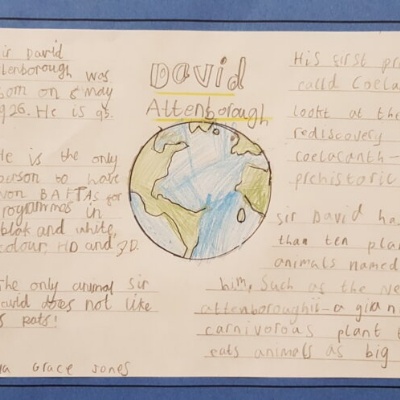 David
Attenborough
Sir David
Attenborough was
born on 8 may
1926. He is 95.
He is the only
person to have
won BAFTAs for
programmas in
blak and white,
colour, HD and 3D.
The only animal Sir
David does not like
is rats!
Grace Jones
His first pr
calld Coela
lookt at th
rediscovery
coelacanth-
prehistoric
Sir David ha
than ten pla
animals named
him, Such as the Ne
attenboroughii-a gian
carnivorous plant t
eats animals as big